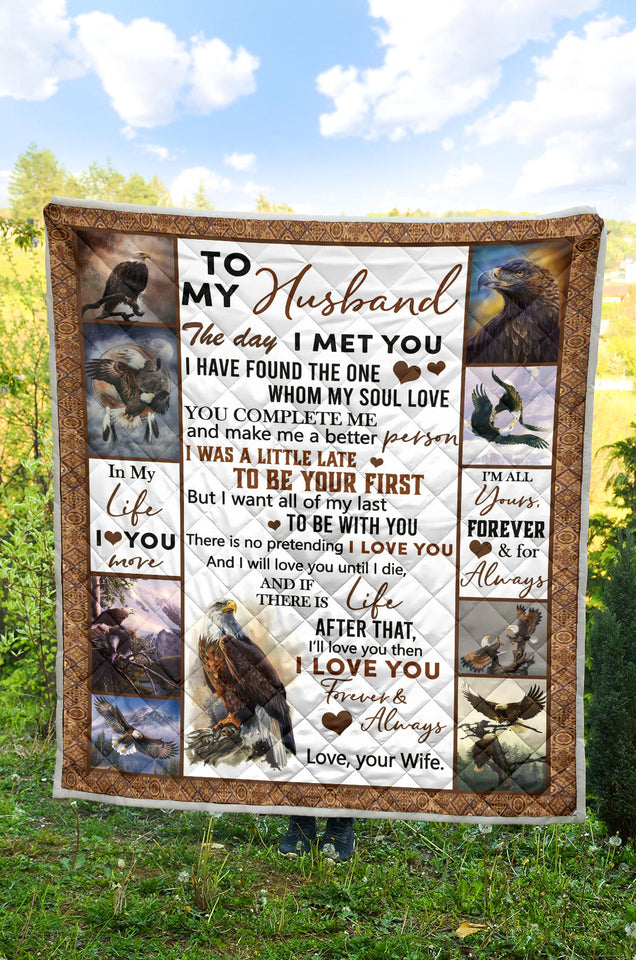 TO
MY Husband
The day I MET YOU
I HAVE FOUND THE ONE
WHOM MY SOUL LOVE
YOU COMPLETE ME
and make me a better person
I WAS A LITTLE LATE
TO BE YOUR FIRST
But I want all of my last
TO BE WITH YOU
There is no pretending I LOVE YOU
And I will love you until I die,
AND IF
THERE IS Life
AFTER THAT,
I'll love you then
I LOVE YOU
Forever &
Always
Love, your Wife.
In My
Life
I YOU
more
I'M ALL
Yours,
FOREVER
& for
Always